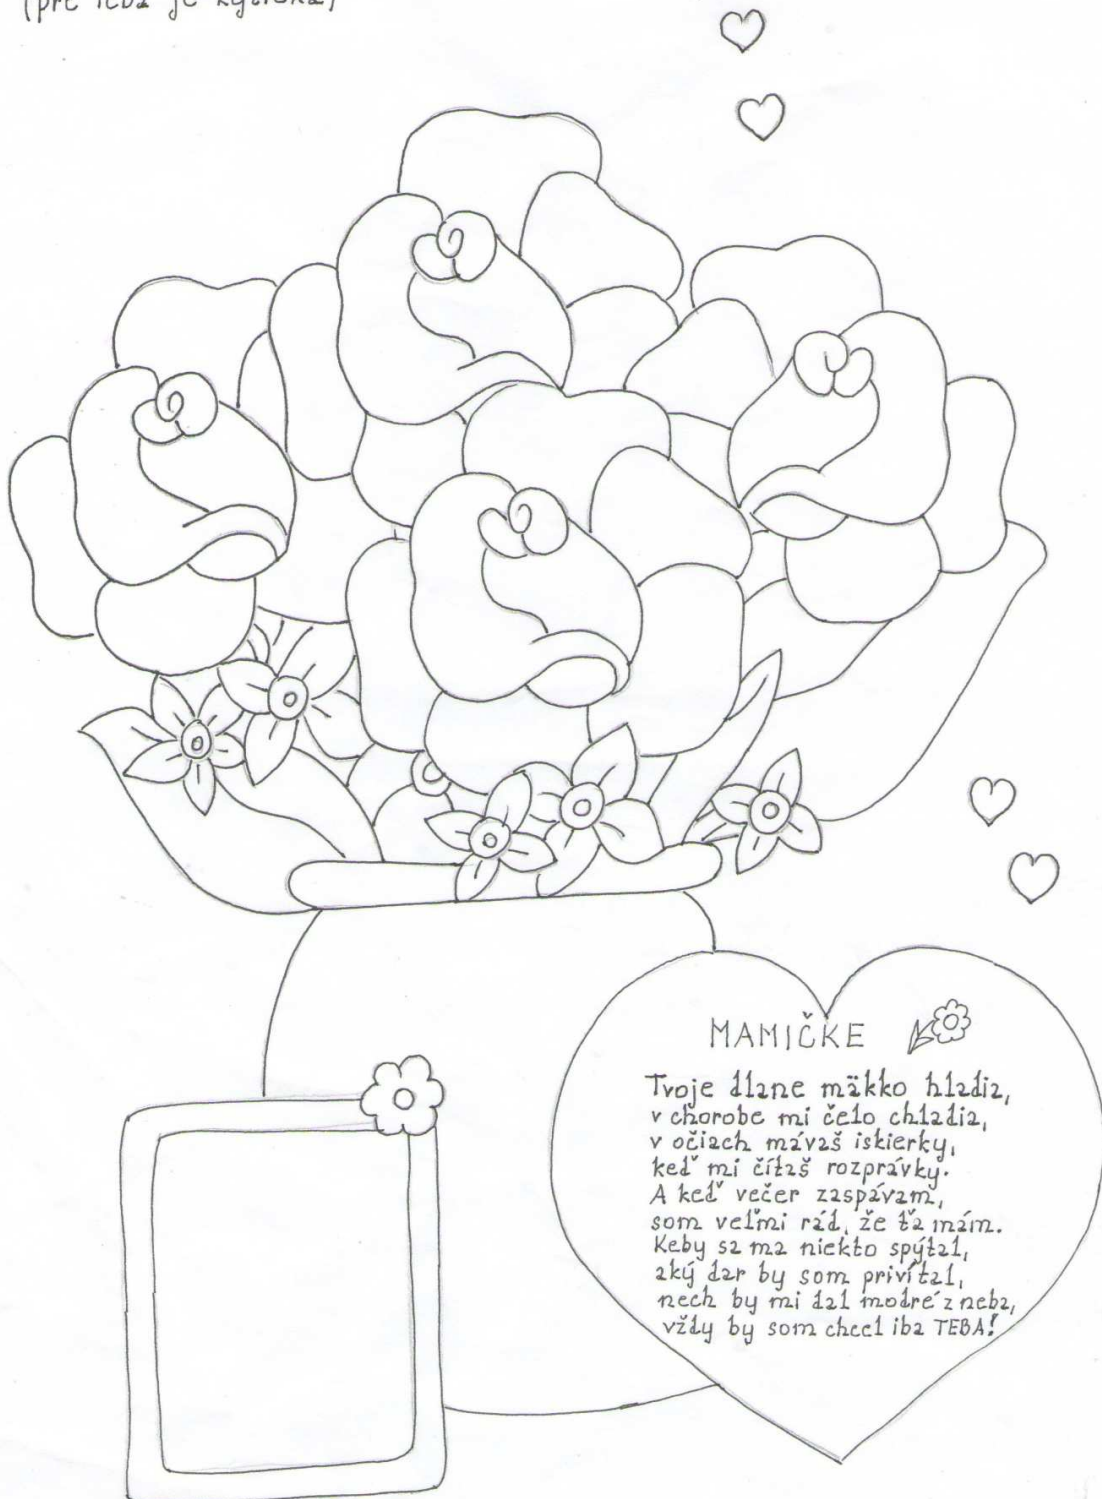 (pre teba je kytička)
MAMIČKE
Tvoje dlane mäkko hladia,
v chorobe mi čelo chladia,
v očiach mávaš iskierky,
keď mi čítaš rozprávky.
A keď večer zaspávam,
som veľmi rád, že ťa mám.
Keby sa ma niekto spýtal,
aký dar by som privítal,
nech by mi dal modré z neba,
vždy by som chcel iba TEBA!